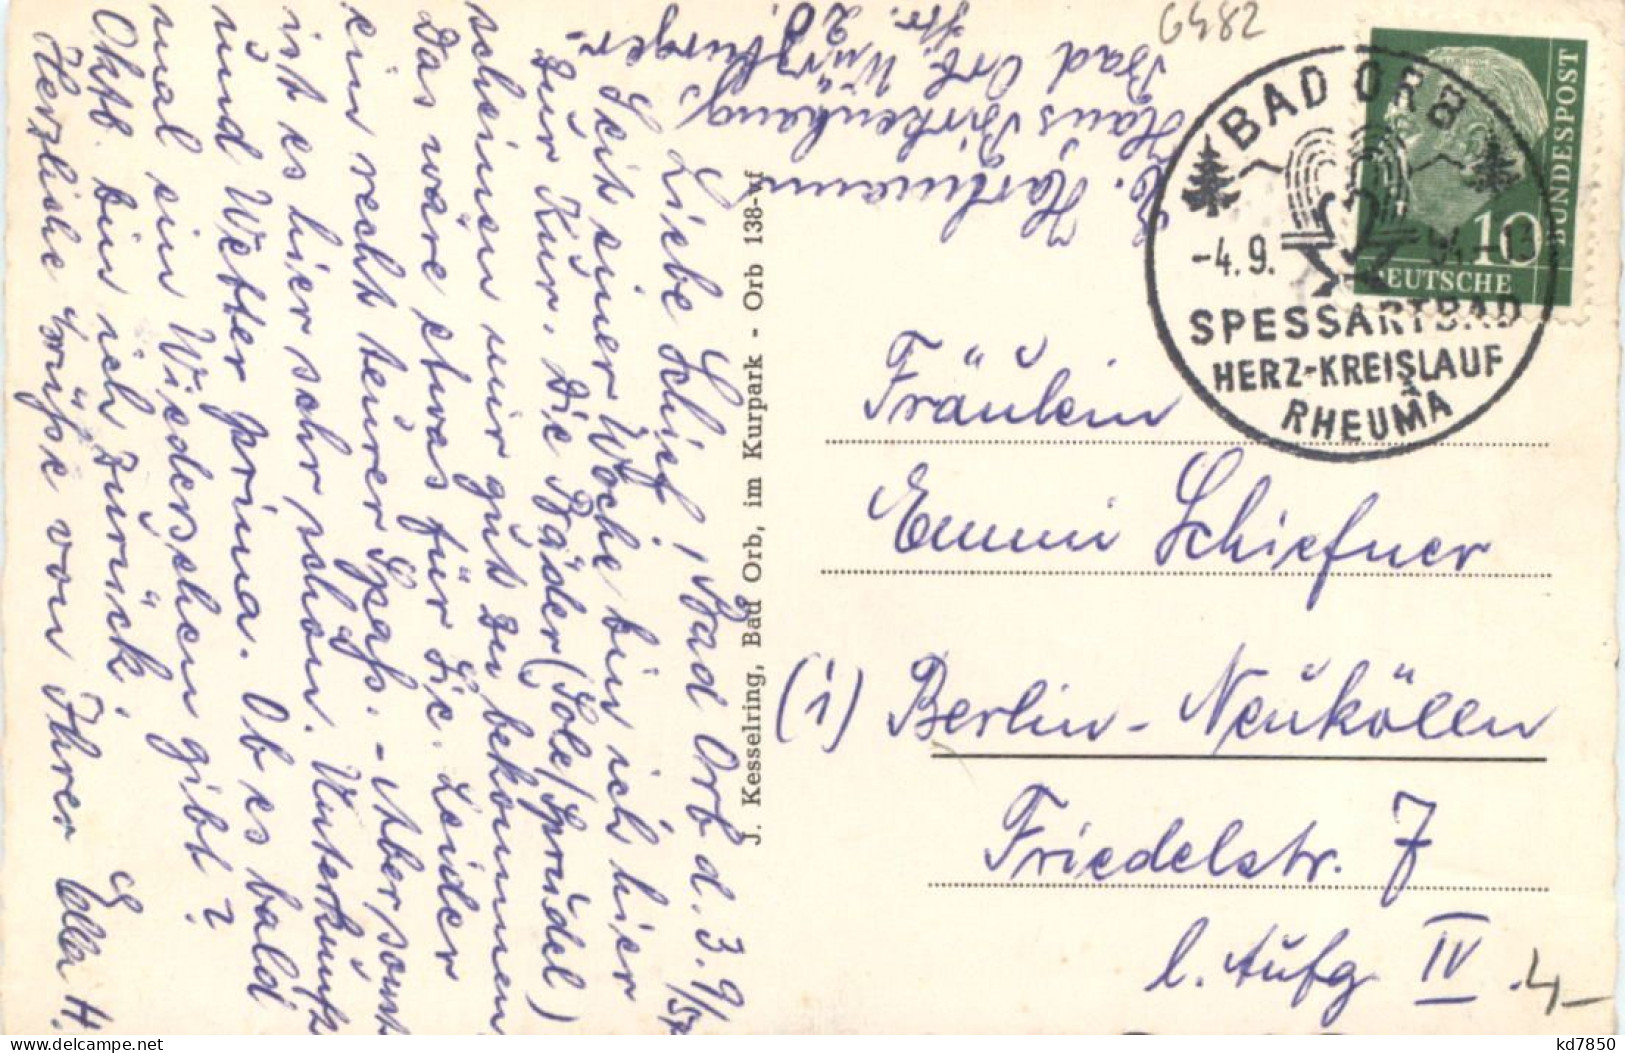 6482
E. Hartmann
Haus Birkenhang
Bad Orb, Würzburger-
Str. 20.
BAD ORB
-4.9.54.-13
SPESSARTBAD
HERZ-KREISLAUF
RHEUMA
BUNDESPOST
10
DEUTSCHE
Liebe Schief, Bad Orb d. 3.9./54
Seit einer Woche bin ich hier
zur Kur. Die Bäder (Sole/Sprudel)
scheinen mir gut zu bekommen
Das wäre etwas für Sie. Leider
ein recht teurer Spaß. - Aber sonst
ist es hier sehr schön. Unterkunft
und Wetter prima. Ob es bald
mal ein Wiedersehen gibt?
Oktb. bin ich zurück.
Herzliche Grüße von Ihrer Ella H.
J. Kesselring, Bad Orb, im Kurpark - Orb 138-nf
Fräulein
Emmi Schiefner
(1) Berlin-Neukölln
Friedelstr. 7
l. Aufg IV
.4-
kd7850
delcampe.net